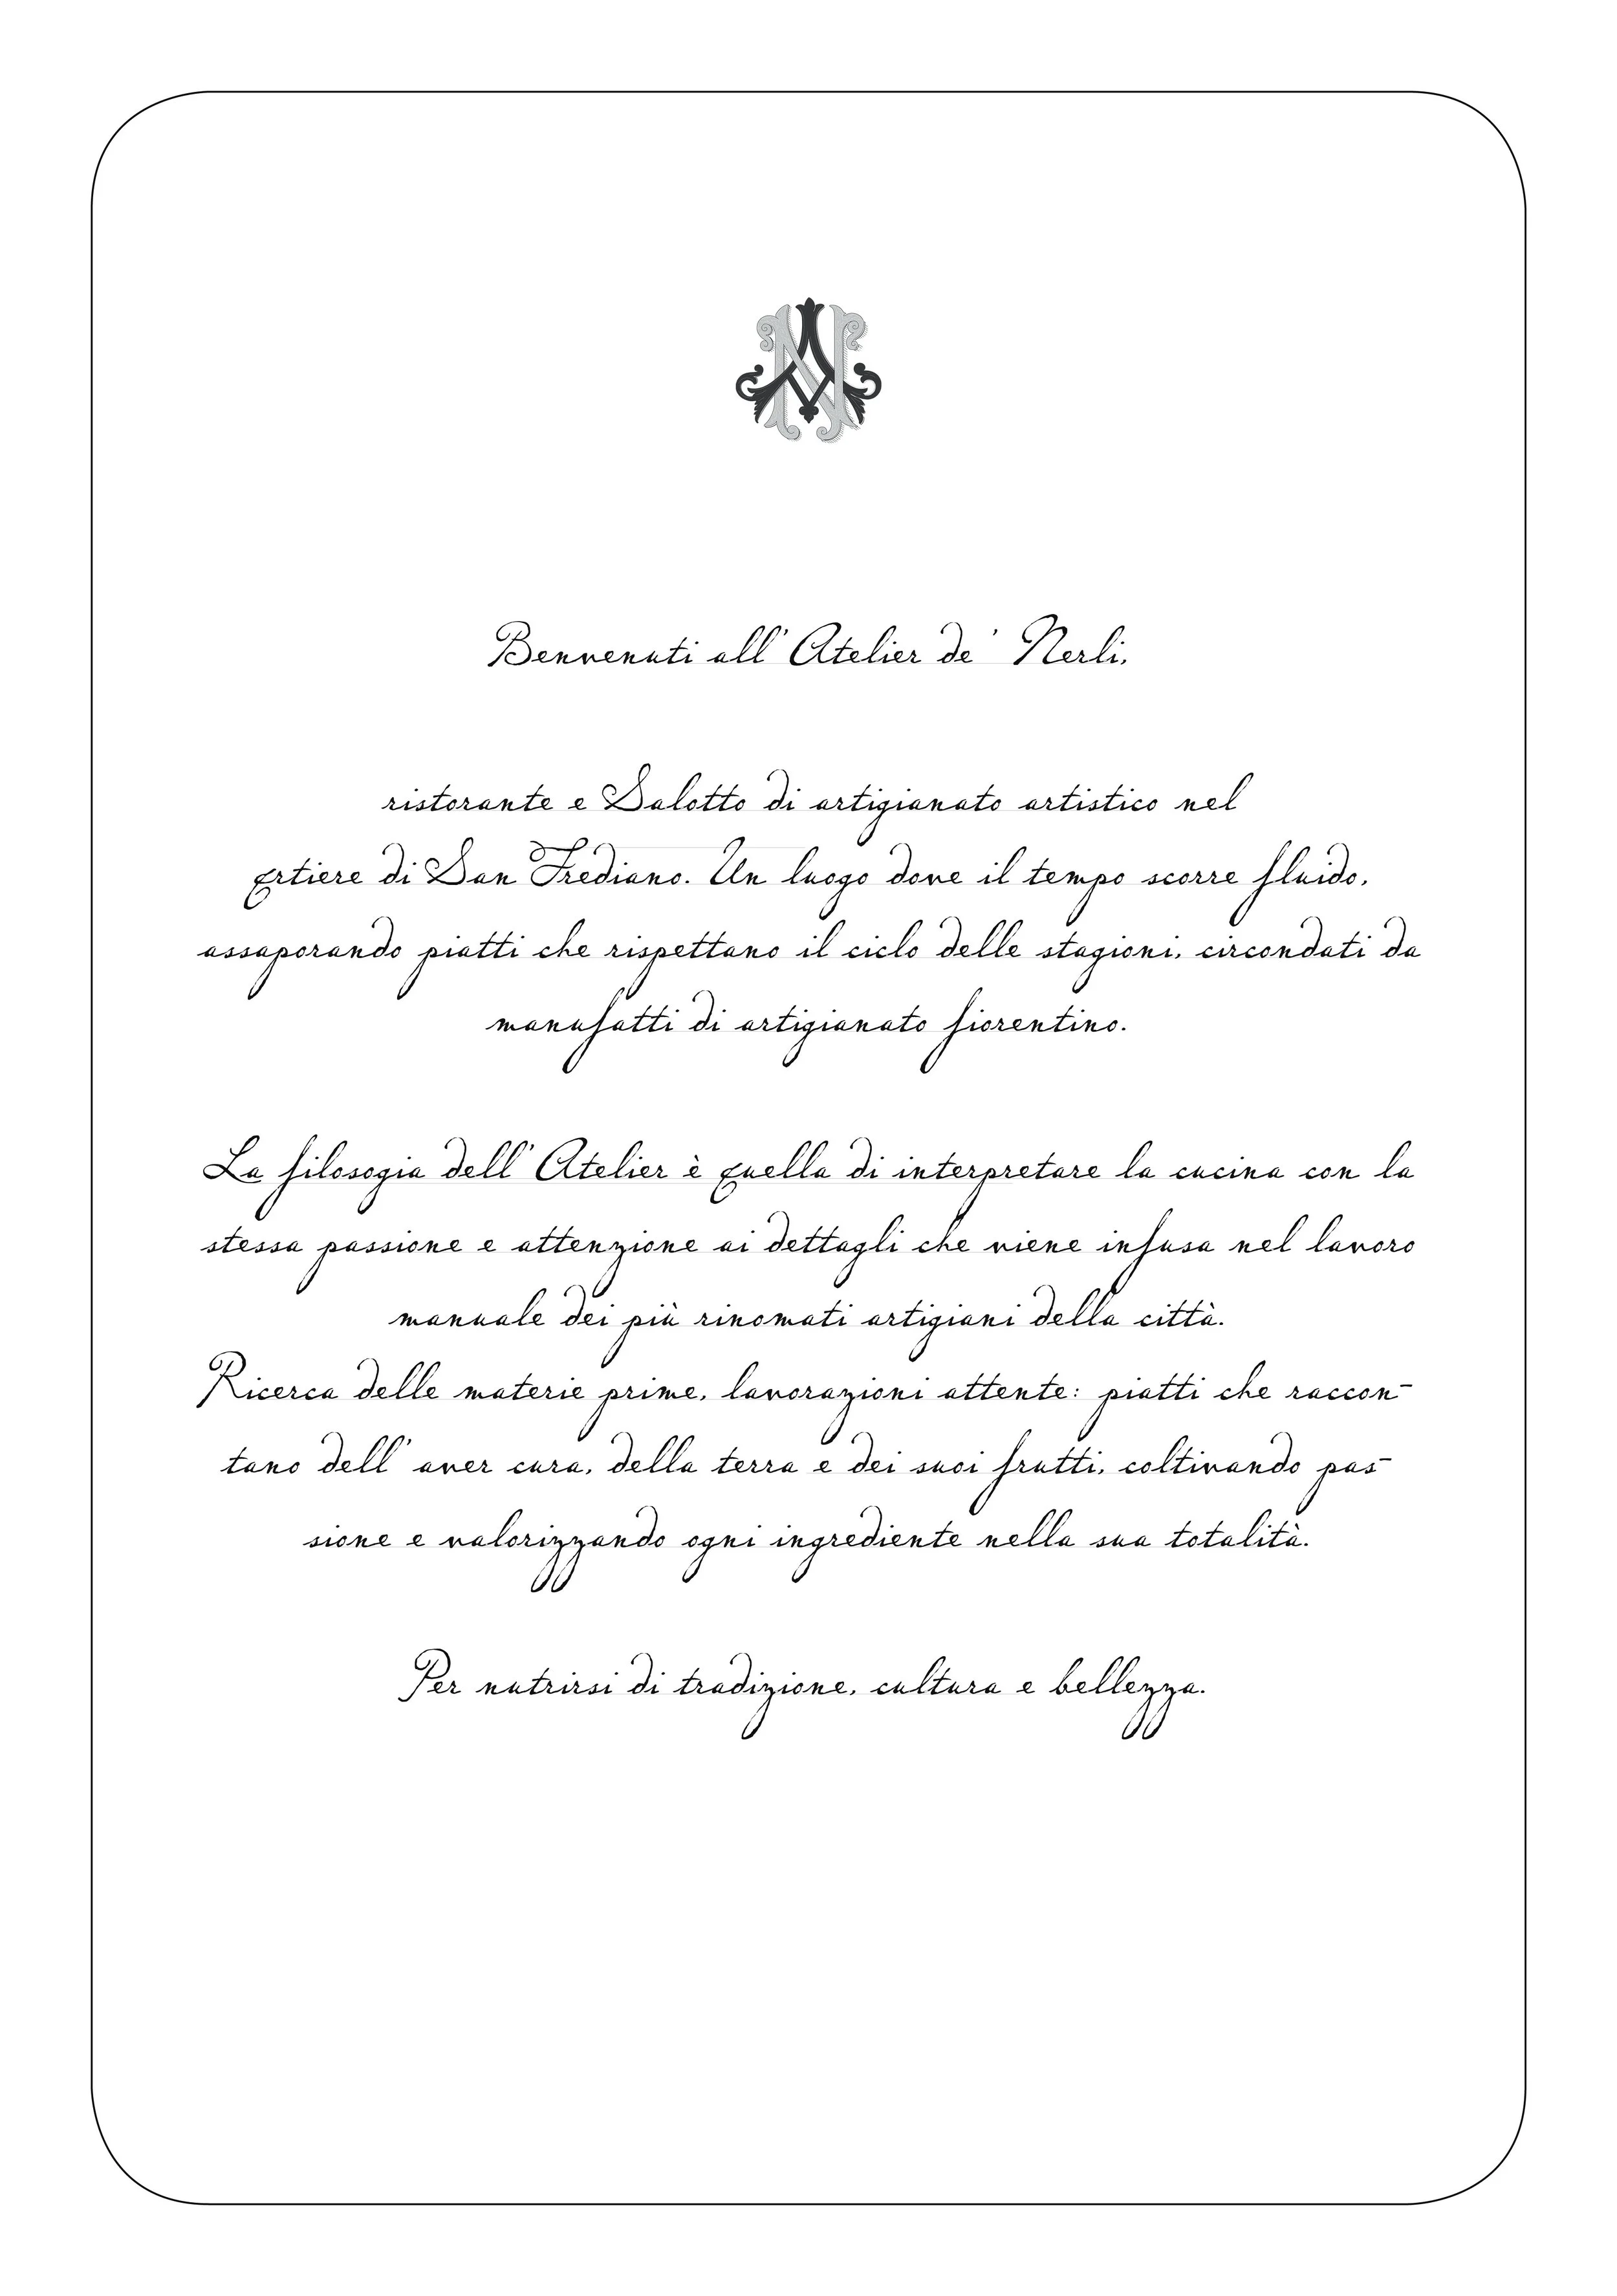 Benvenuti all'Atelier de' Nerli,
ristorante e Salotto di artigianato artistico nel
qrtiere di San Frediano. Un luogo dove il tempo scorre fluido,
assaporando piatti che rispettano il ciclo delle stagioni, circondati da
manufatti di artigianato fiorentino.
La filosogia dell'Atelier è quella di interpretare la cucina con la
stessa passione e attenzione ai dettagli che viene infusa nel lavoro
manuale dei più rinomati artigiani della città.
Ricerca delle materie prime, lavorazioni attente: piatti che raccon-
tano dell'aver cura, della terra e dei suoi frutti, coltivando pas-
sione e valorizzando ogni ingrediente nella sua totalità.
Per nutrirsi di tradizione, cultura e bellezza.